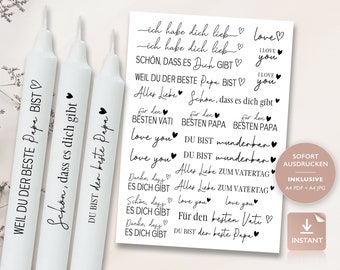 WEIL DU DER BESTE Papa BIST ♡
Schön, dass es dich gibt ♥
DU BIST der beste Papa ♥
ich habe dich lieb ♡
ich habe dich lieb ♡
love ♡
SCHÖN, DASS ES Dich GIBT
I LOVE you ♥
WEIL DU DER BESTE Papa BIST ♡
I LOVE you ♥
Alles Liebe ♥
Schön, dass es dich gibt ♥
für den BESTEN VATI ♥
für den BESTEN PAPA
für den BESTEN PAPA ♥
love you ♥
DU BIST wunderbar ♥
love you ♥
DU BIST wunderbar ♥
Danke, dass ES DICH GIBT
Alles Liebe ZUM VATERTAG ♥
Alles Liebe ZUM VATERTAG ♥
Danke, dass ES DICH GIBT
love you ♥
love you ♡
Für den besten Vati ♡
Danke, dass ES DICH GIBT
DU BIST der beste Papa ♥
SOFORT
AUSDRUCKEN
INKLUSIVE
A4 PDF + A4 JPG
INSTANT